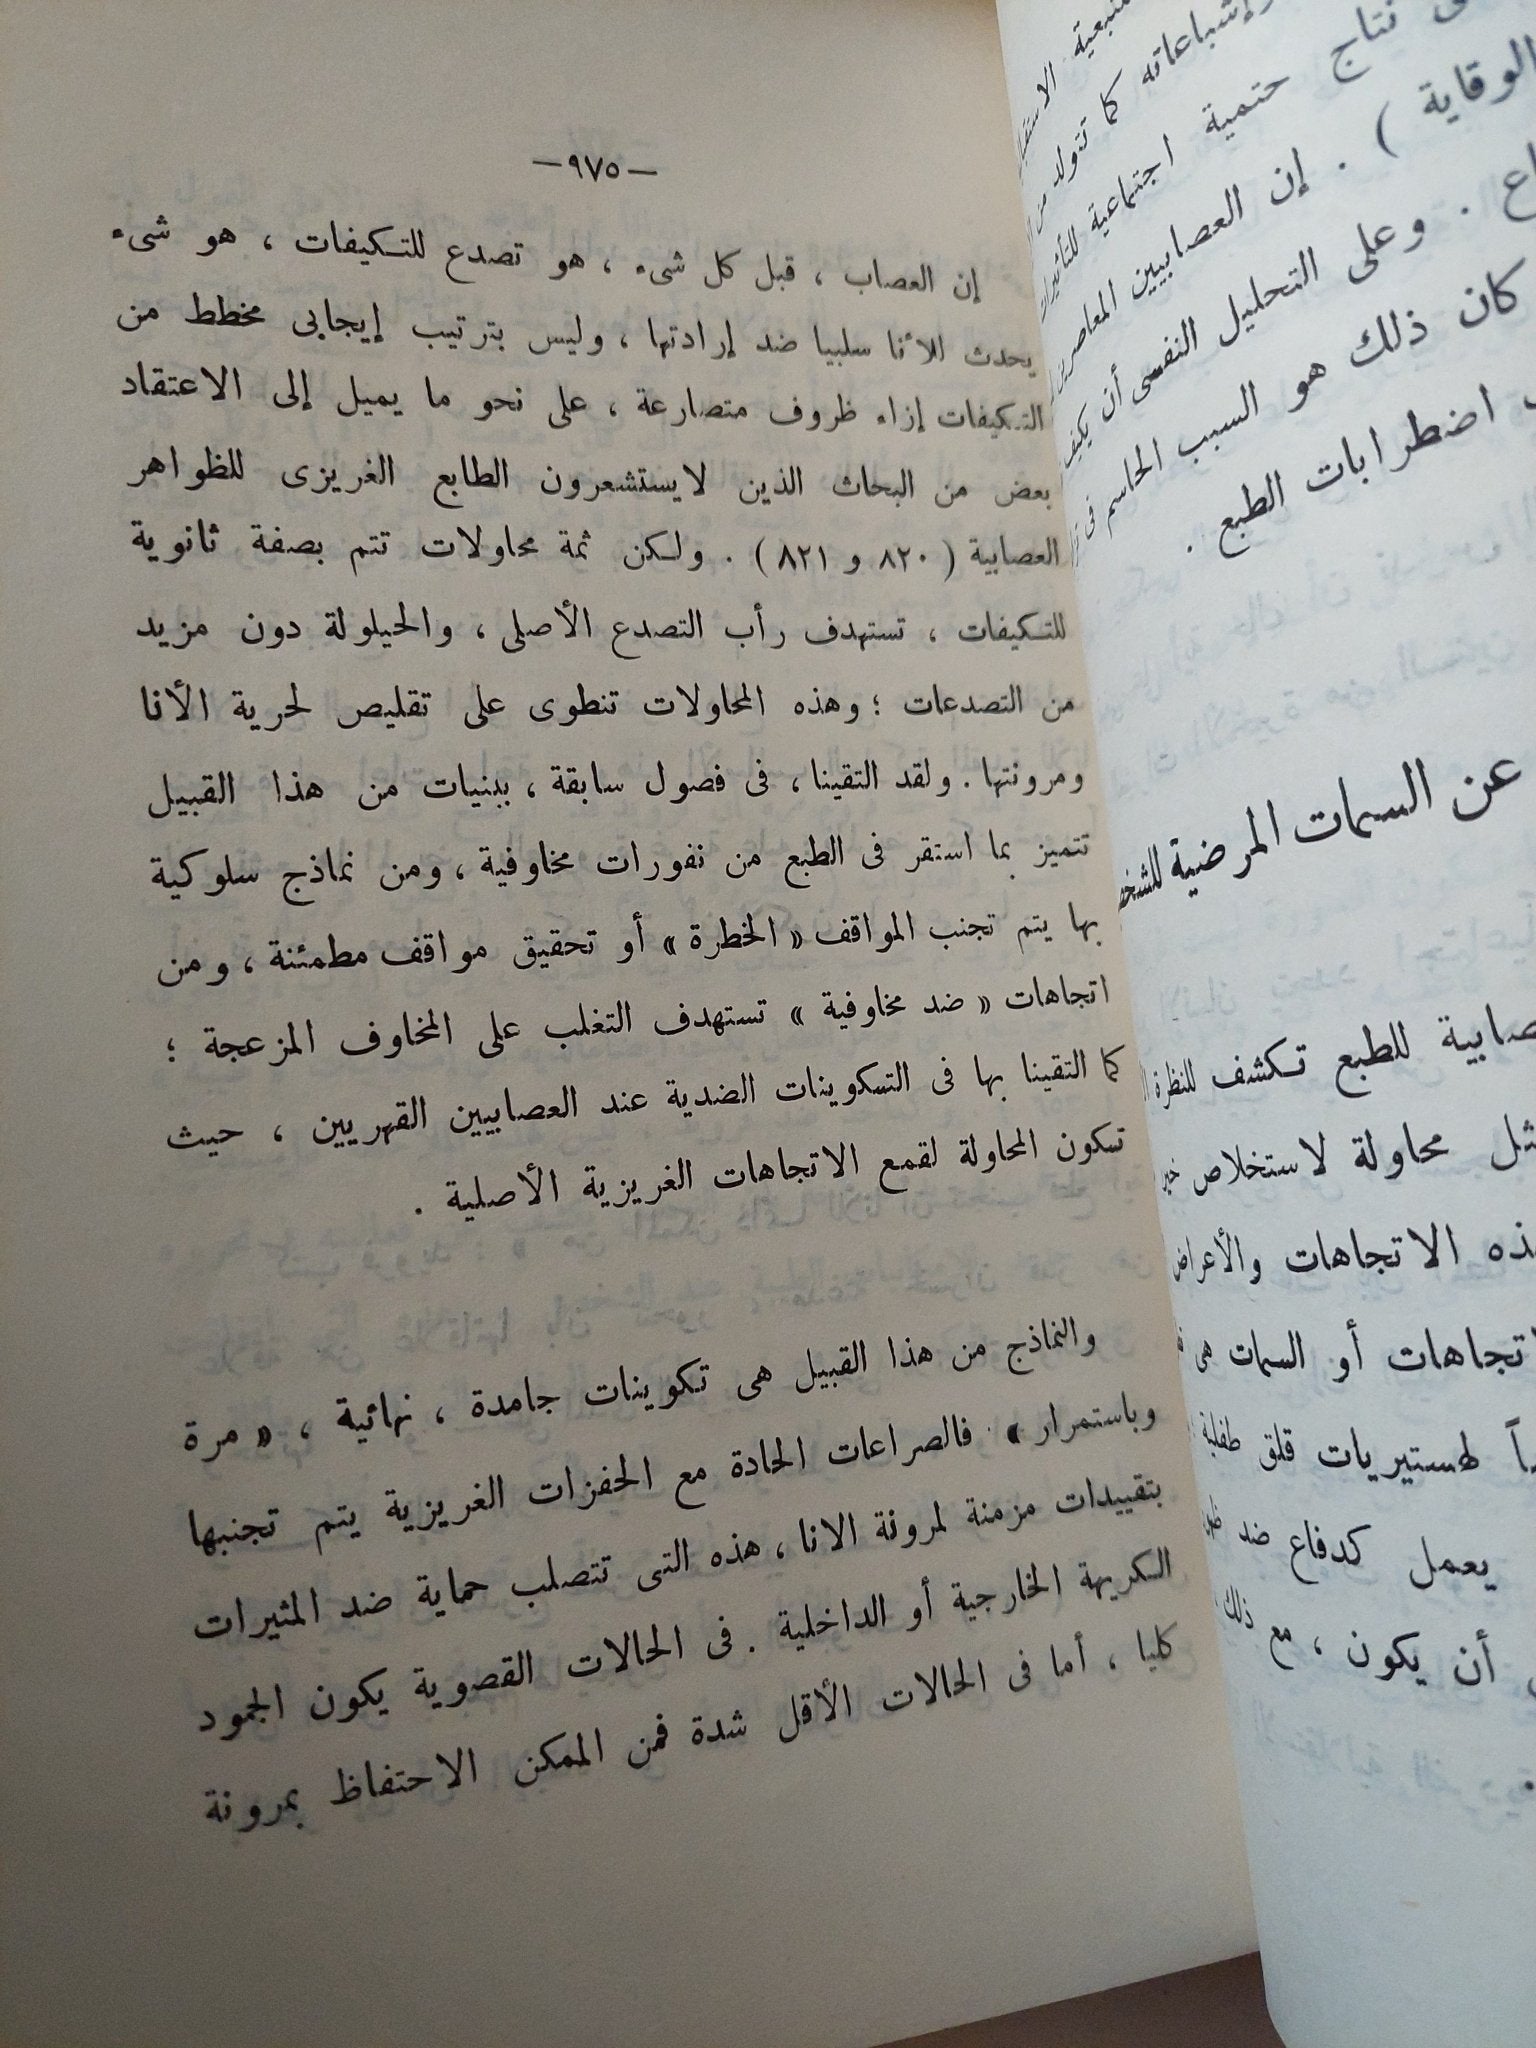 —٩٧٥—
إن العصاب ، قبل كل شىء ، هو تصدع للتكيفات ، هو شىء
يحدث للأنا سلبيا ضد إرادتها ، وليس بترتيب إيجابى مخطط من
التكيفات إزاء ظروف متصارعة ، على نحو ما يميل إلى الاعتقاد
بعض من البحاث الذين لايستشعرون الطابع الغريزى للظواهر
العصابية ( ٨٢٠ و ٨٢١ ) . ولكن ثمة محاولات تتم بصفة ثانوية
للتكيفات ، تستهدف رأب التصدع الأصلى ، والحيلولة دون مزيد
من التصدعات ؛ وهذه المحاولات تنطوى على تقليص لحرية الأنا
ومرونتها . ولقد التقينا ، فى فصول سابقة ، ببنيات من هذا القبيل
تتميز بما استقر فى الطبع من نفورات مخاوفية ، ومن نماذج سلوكية
بها يتم تجنب المواقف « الخطرة » أو تحقيق مواقف مطمئنة ، ومن
اتجاهات « ضد مخاوفية » تستهدف التغلب على المخاوف المزعجة ؛
كما التقينا بها فى التكوينات الضدية عند العصابيين القهريين ، حيث
تكون المحاولة لقمع الاتجاهات الغريزية الأصلية .
والنماذج من هذا القبيل هى تكوينات جامدة ، نهائية ، « مرة
وباستمرار » . فالصراعات الحادة مع الحفزات الغريزية يتم تجنبها
بتقييدات مزمنة لمرونة الانا ، هذه التى تتصلب حماية ضد المثيرات
الكريهة الخارجية أو الداخلية . فى الحالات القصوية يكون الجمود
كليا ، أما فى الحالات الأقل شدة فمن الممكن الاحتفاظ بمرونة
وإشباعاته كما تتولد من
نتاج حتمية اجتماعية للتأثيرات
الوقاية ) . إن العصابيين المعاصرين
. وعلى التحليل النفسى أن يكيف
كان ذلك هو السبب الحاسم فى
اضطرابات الطبع .
عن السمات المرضية
للطبع تكشف للنظرة
محاولة لاستخلاص
الاتجاهات والأعراض
أو السمات هى
لهستيريات قلق طفلية
يعمل كدفاع ضد
أن يكون ، مع ذلك